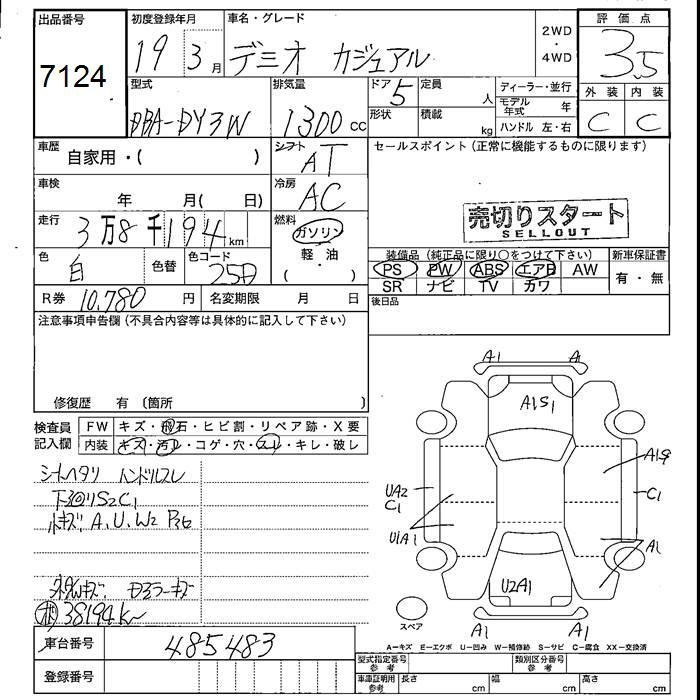 出品番号
7124
初度登録年月
19 3月
車名・グレード
デミオ カジュアル
2WD
・
4WD
評価点
3.5
外装 内装
C C
型式
DBA-DY3W
排気量
1300 cc
ドア 5
定員 人
形状
積載 kg
ディーラー・並行
モデル年式 年
ハンドル 左・右
車歴
自家用・( )
シフト
AT
車検
年 月( 日)
冷房
AC
走行
3万8千194km
燃料
ガソリン
軽・油
( )
色
白
色替
色コード
25D
R券 10,780 円
名変期限 月 日
セールスポイント(正常に機能するものに限ります)
売切りスタート
SELLOUT
装備品(純正品に限り○をつけて下さい)
PS PW ABS エアB AW
SR ナビ TV カワ
新車保証書
有・無
後日品
注意事項申告欄(不具合内容等は具体的に記入して下さい)
修復歴 有(箇所 )
検査員
記入欄
FW キズ・飛石・ヒビ割・リペア跡・X要
内装 キズ・汚レ・コゲ・穴・スレ・キレ・破レ
シートヘタリ ハンドルスレ
S2C1
A,U,W2
ドアミラーキズ
38194km
A1 A1
A1S1
A1S1
UA2
C1
C1
U1A1
A1
U2A1
A1 A1
スペア
A-キズ E-エクボ U-凹み W-補修跡 S-サビ C-腐食 XX-交換済
車台番号 485483
登録番号
型式指定番号
参考
類別区分番号
参考
車庫証明用
参考
長さ cm
幅 cm
高さ cm